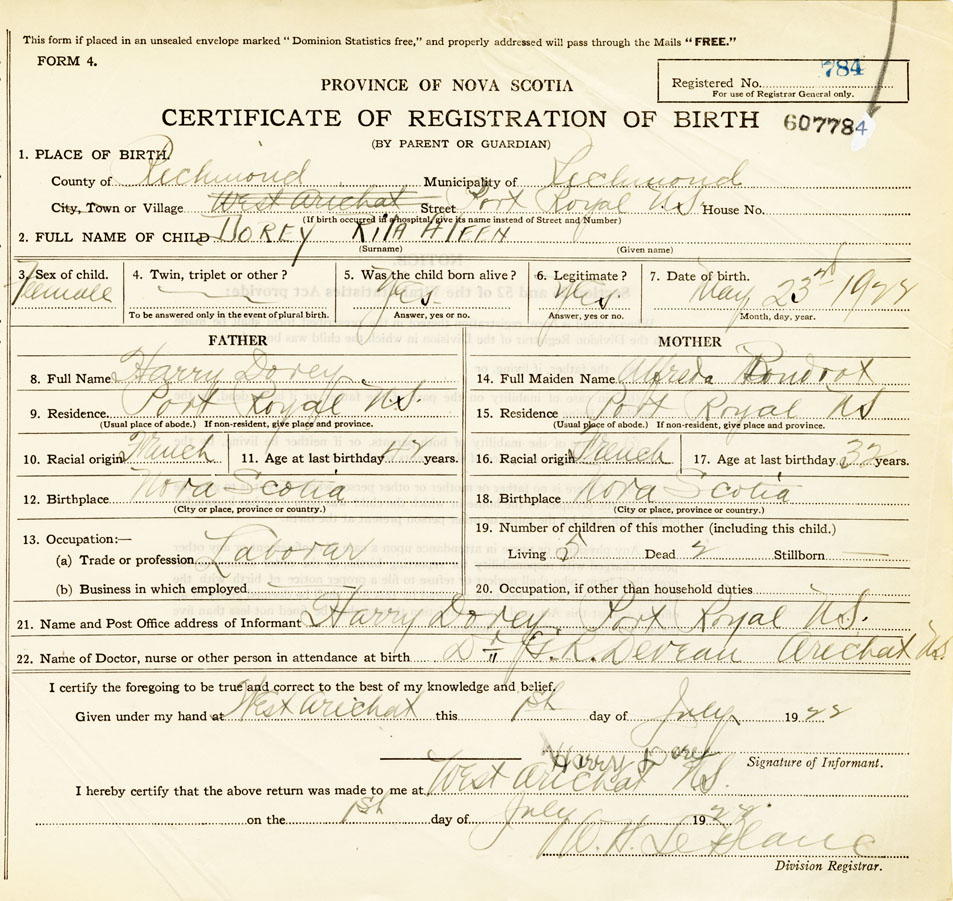 This form if placed in an unsealed envelope marked "Dominion Statistics free," and properly addressed will pass through the Mails "FREE."
FORM 4.
Registered No. 784
For use of Registrar General only.
PROVINCE OF NOVA SCOTIA
CERTIFICATE OF REGISTRATION OF BIRTH 607784
(BY PARENT OR GUARDIAN)
1. PLACE OF BIRTH.
County of Richmond Municipality of Richmond
City, Town or Village West Arichat Street Port Royal N.S. House No.
(If birth occurred in a hospital, give its name instead of Street and Number)
2. FULL NAME OF CHILD DOREY RITA
(Surname) (Given name)
3. Sex of child. 4. Twin, triplet or other? 5. Was the child born alive? 6. Legitimate? 7. Date of birth.
Female Yes Yes May 23rd 1922
To be answered only in the event of plural birth. Answer, yes or no. Answer, yes or no. Month, day, year.
FATHER MOTHER
8. Full Name Harry Dorey 14. Full Maiden Name Alfreda
9. Residence. Port Royal N.S. 15. Residence Port Royal N S
(Usual place of abode.) If non-resident, give place and province. (Usual place of abode.) If non-resident, give place and province.
10. Racial origin French 11. Age at last birthday 42 years. 16. Racial origin French 17. Age at last birthday 32 years.
12. Birthplace Nova Scotia 18. Birthplace Nova Scotia
(City or place, province or country.) (City or place, province or country.)
13. Occupation:— 19. Number of children of this mother (including this child.)
(a) Trade or profession Laborar Living 5 Dead 2 Stillborn —
(b) Business in which employed 20. Occupation, if other than household duties
21. Name and Post Office address of Informant Harry Dorey. Port Royal N.S.
22. Name of Doctor, nurse or other person in attendance at birth Dr Deveau Arichat N.S.
I certify the foregoing to be true and correct to the best of my knowledge and belief.
Given under my hand at West Arichat this 1st day of July 1922
Harry Dorey Signature of Informant.
I hereby certify that the above return was made to me at West Arichat N.S.
on the 1st day of July 1922
LeBlanc
Division Registrar.